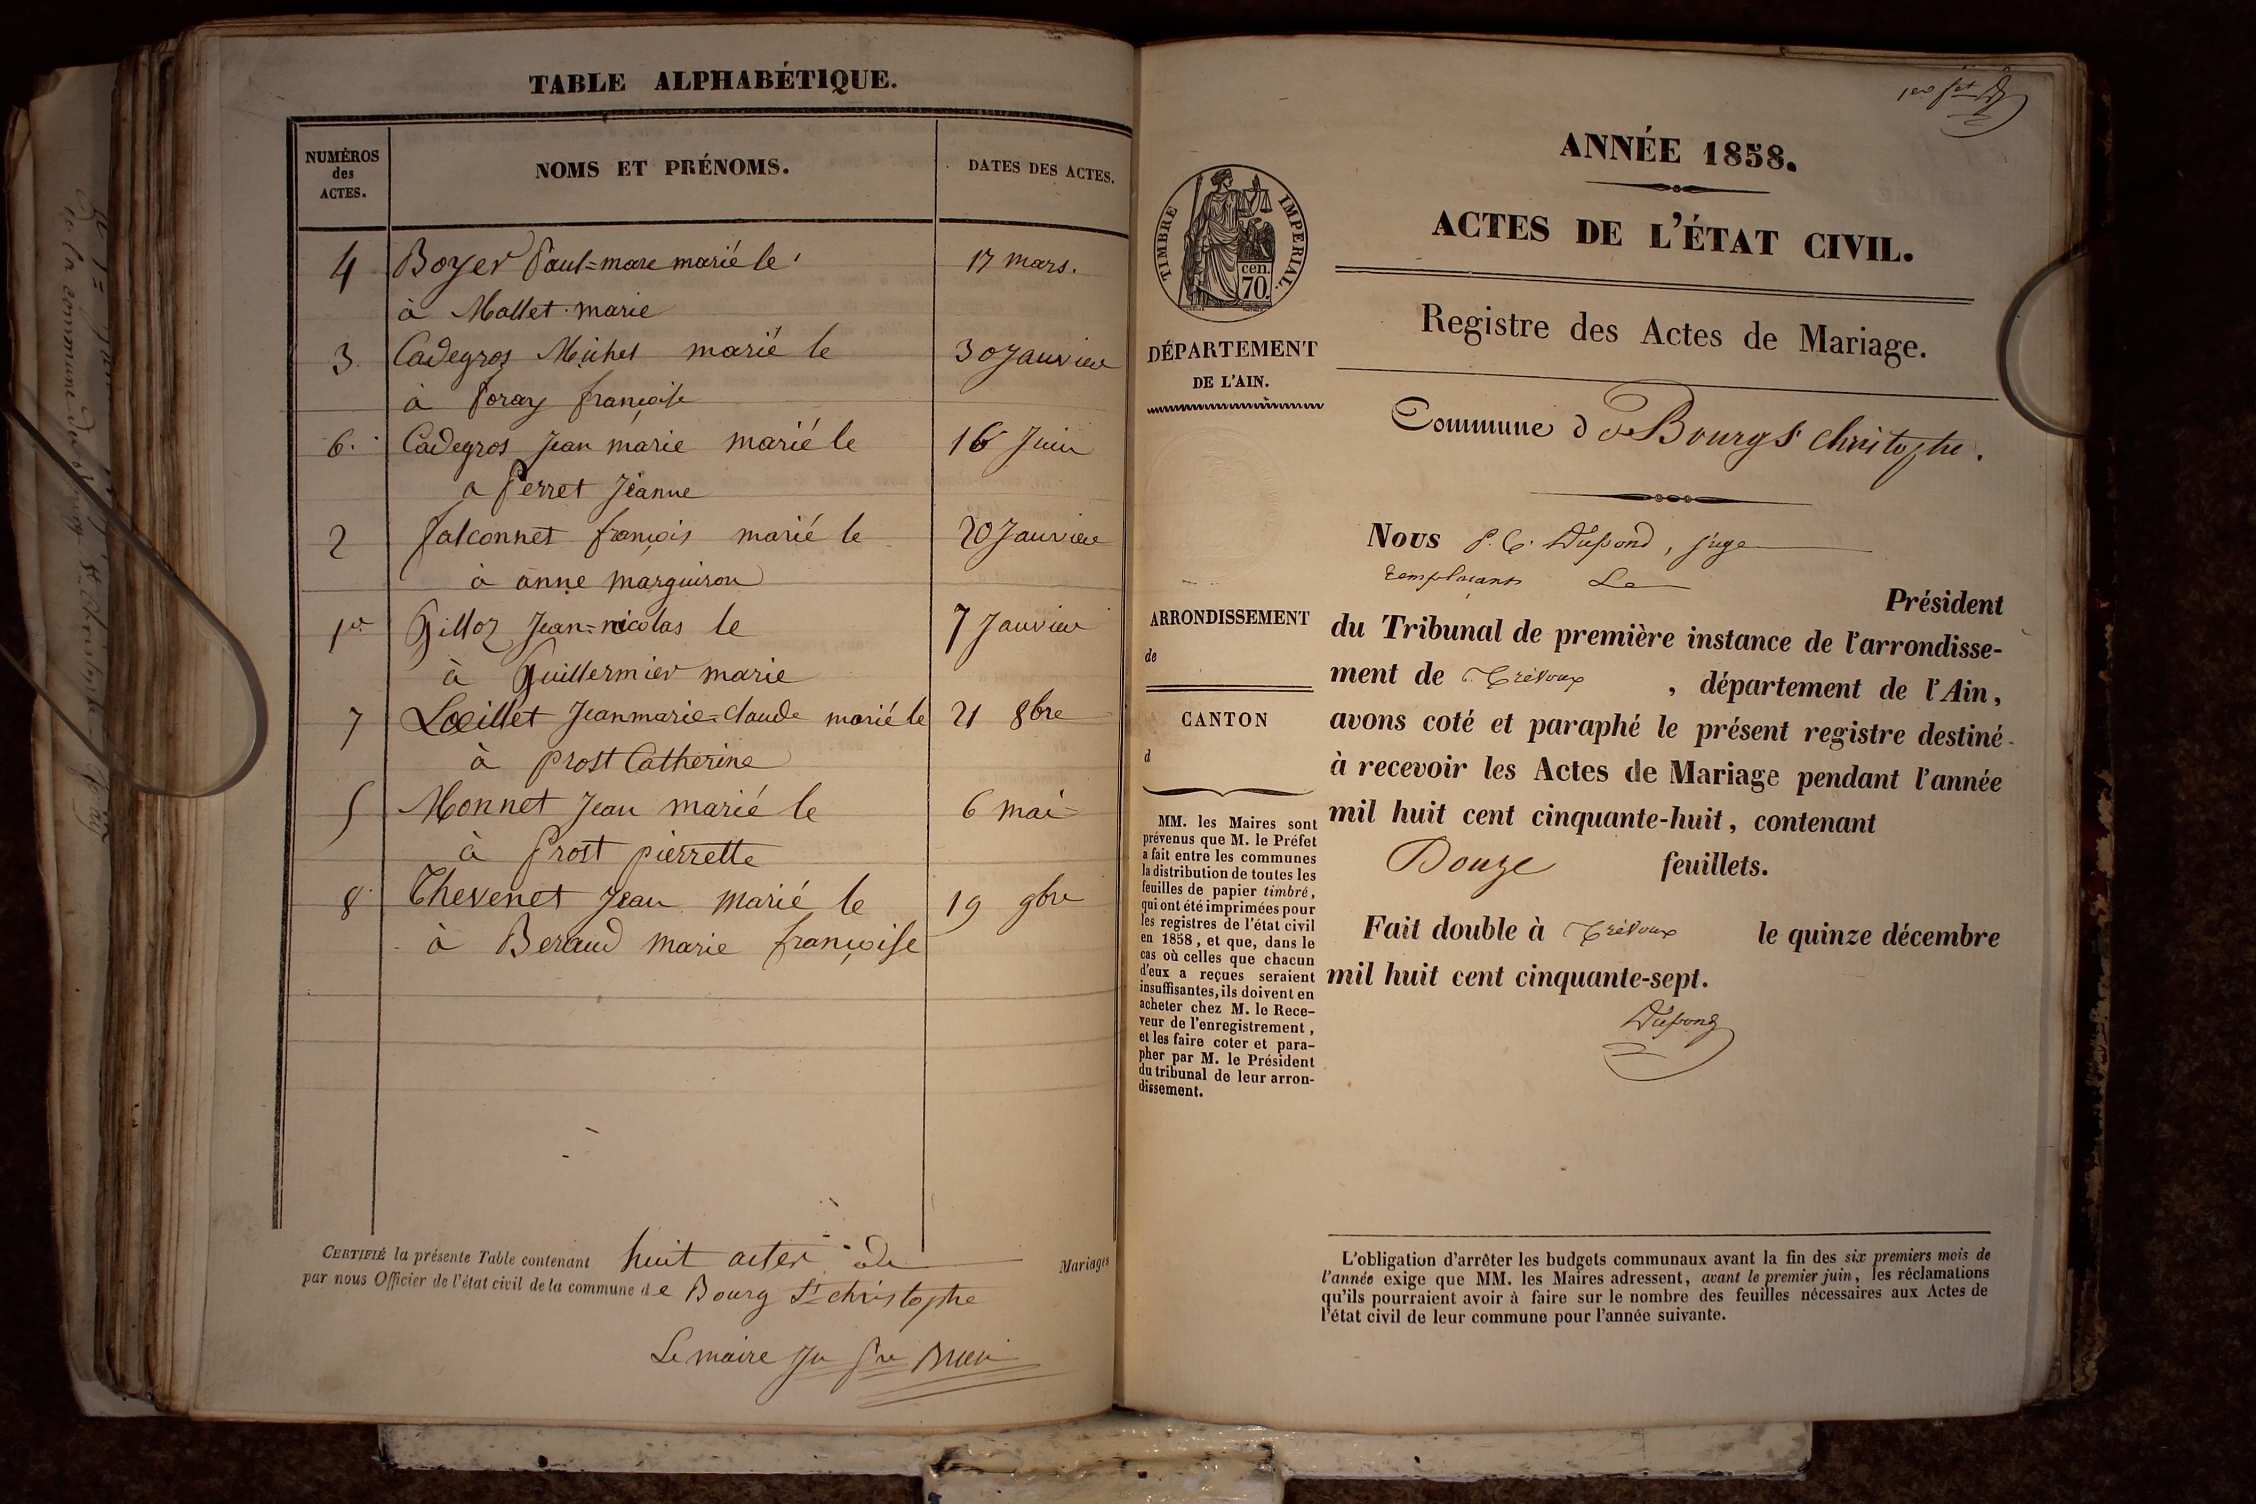 TABLE ALPHABÉTIQUE.
NUMÉROS des ACTES.
NOMS ET PRÉNOMS.
DATES DES ACTES.
4 Boyer Paul=marc marié le 17 mars.
à Mallet marie
3 Cadegros Michel marié le 30 Janvier
à Foray françoise
6. Cadegros Jean marie marié le 16 Juin
a Perret Jeanne
2 falconnet françois marié le 20 Janvier
à anne marguiron
1er Gilloz Jean=nicolas le 7 Janvier
à Guillermier marie
7 Lœillet Jeanmarie=Claude marié le 21 8bre
à prost Catherine
5 Monnet Jean marié le 6 mai
à prost pierrette
8 Thevenet Jean marié le 19 9bre
à Beraud marie françoise
CERTIFIÉ la présente Table contenant huit actes de Mariages
par nous Officier de l'état civil de la commune de Bourg St christophe
Le maire
1er
ANNÉE 1858.
ACTES DE L'ÉTAT CIVIL.
Registre des Actes de Mariage.
Commune d e Bourg St Christophe.
TIMBRE IMPERIAL.
cen.
70.
DÉPARTEMENT
DE L'AIN.
ARRONDISSEMENT
de
CANTON
d
MM. les Maires sont
prévenus que M. le Préfet
a fait entre les communes
la distribution de toutes les
feuilles de papier timbré,
qui ont été imprimées pour
les registres de l'état civil
en 1858, et que, dans le
cas où celles que chacun
d'eux a reçues seraient
insuffisantes, ils doivent en
acheter chez M. le Rece-
veur de l'enregistrement,
et les faire coter et para-
pher par M. le Président
du tribunal de leur arron-
dissement.
Nous P. C. Dupond, juge
remplaçant Le
Président
du Tribunal de première instance de l'arrondisse-
ment de Trévoux, département de l'Ain,
avons coté et paraphé le présent registre destiné
à recevoir les Actes de Mariage pendant l'année
mil huit cent cinquante-huit, contenant
Douze feuillets.
Fait double à Trévoux le quinze décembre
mil huit cent cinquante-sept.
Dupond
L'obligation d'arrêter les budgets communaux avant la fin des six premiers mois de
l'année exige que MM. les Maires adressent, avant le premier juin, les réclamations
qu'ils pourraient avoir à faire sur le nombre des feuilles nécessaires aux Actes de
l'état civil de leur commune pour l'année suivante.